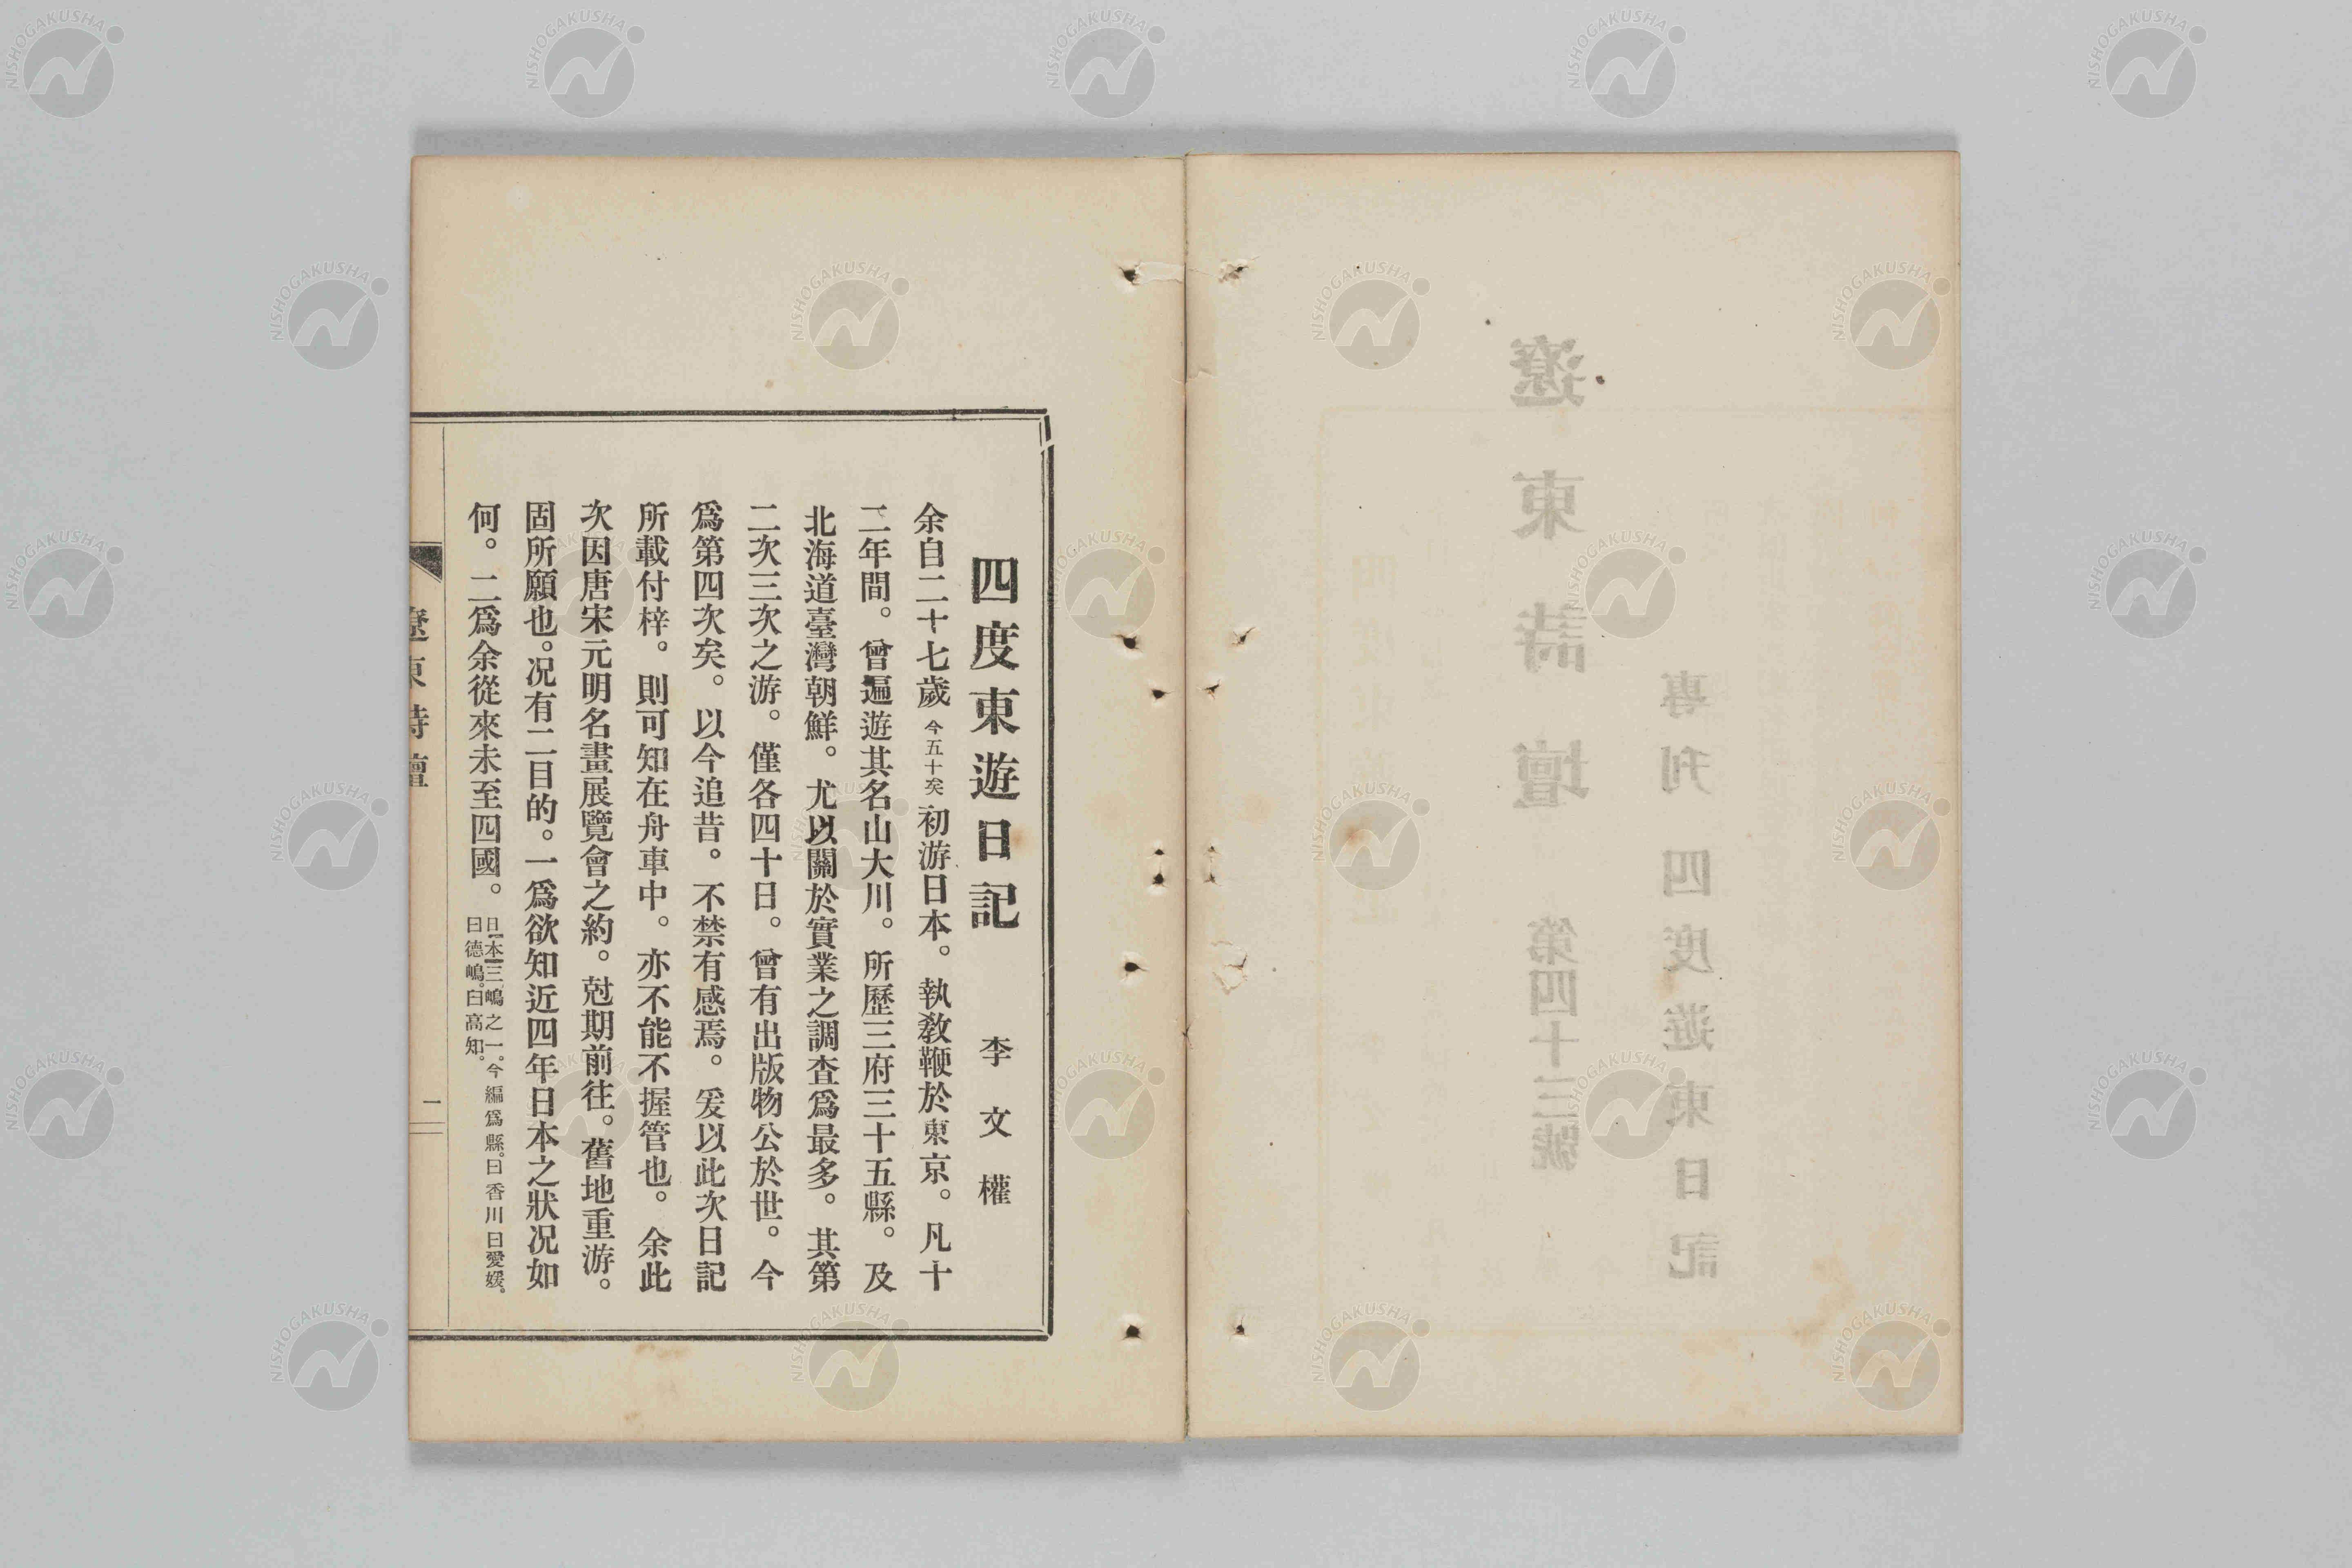 遼東詩壇 第四十三號
專刊 四度遊東日記
四度東遊日記 李文權
余自二十七歲今五十矣初游日本。執敎鞭於東京。凡十
二年間。曾遍遊其名山大川。所歷三府三十五縣。及
北海道臺灣朝鮮。尤以關於實業之調查爲最多。其第
二次三次之游。僅各四十日。曾有出版物公於世。今
爲第四次矣。以今追昔。不禁有感焉。爰以此次日記
所載付梓。則可知在舟車中。亦不能不握管也。余此
次因唐宋元明名畫展覽會之約。尅期前往。舊地重游。
固所願也。况有二目的。一爲欲知近四年日本之狀况如
何。二爲余從來未至四國。日本三嶋之一。今編爲縣。曰香川曰愛媛。曰德嶋。曰高知。
遼東詩壇 一
NISHOGAKUSHA